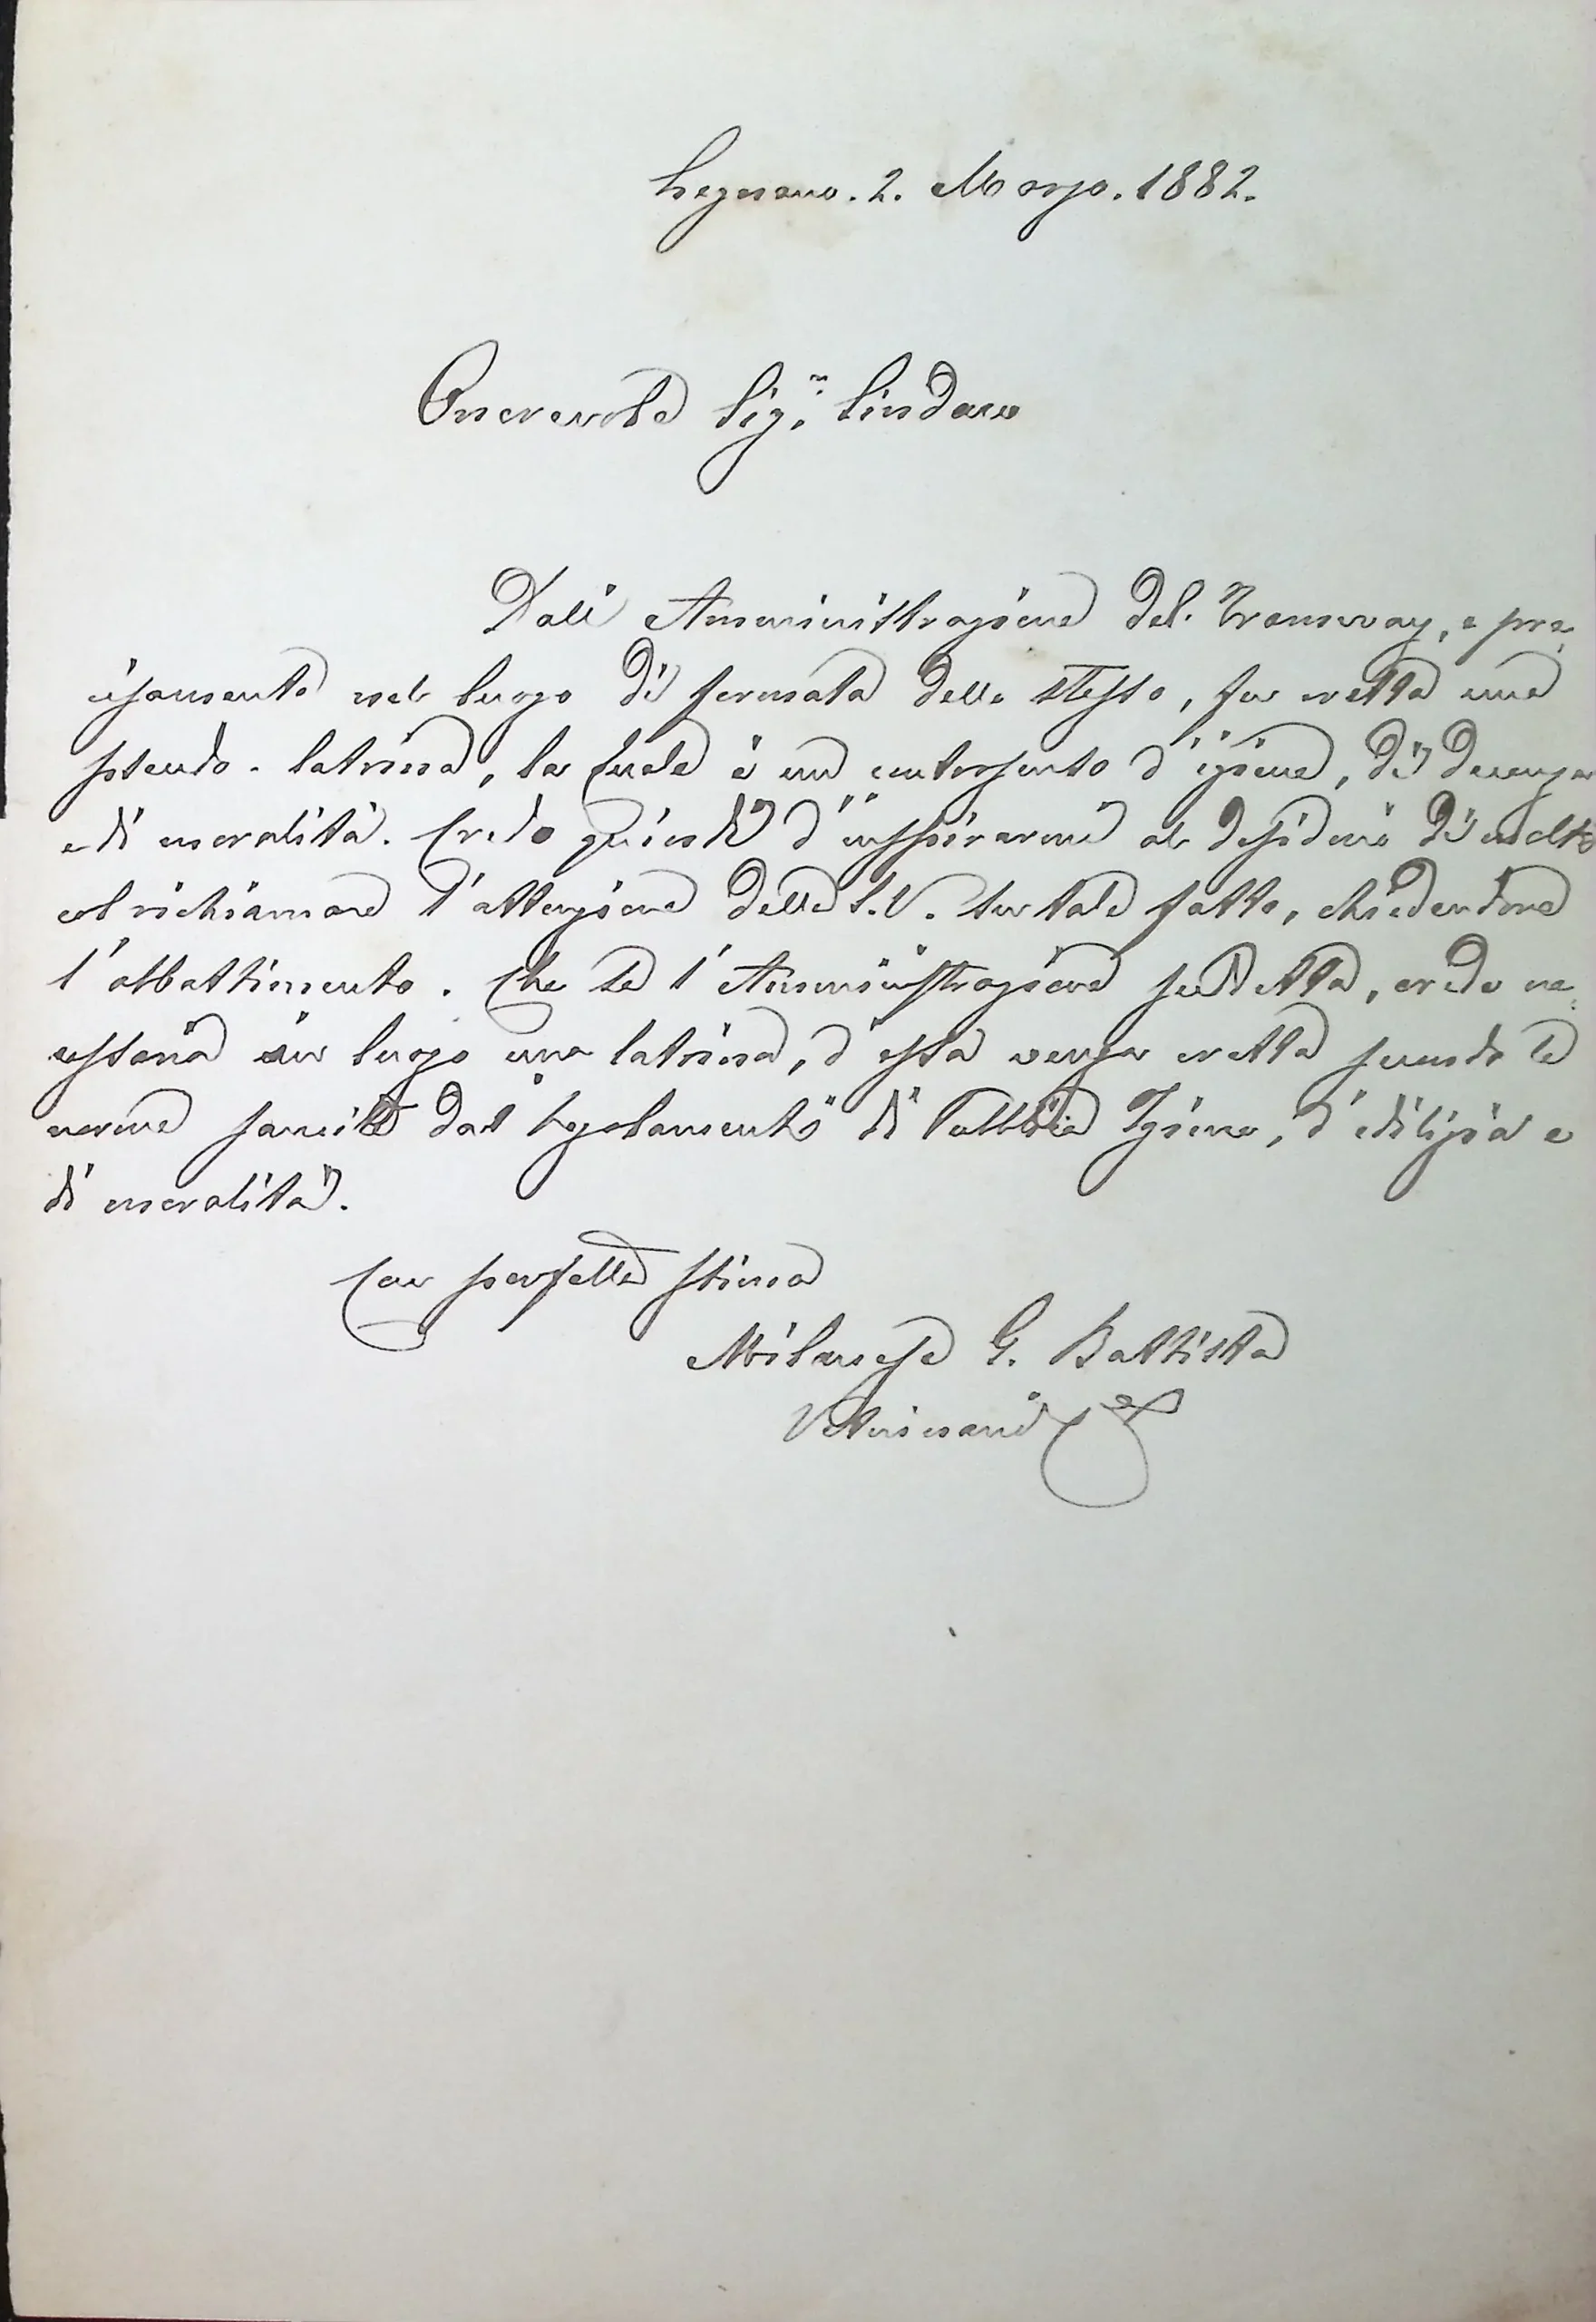 Legnano. 2. Marzo. 1882.
Onorevole Sig.r Sindaco
Dall' Amministrazione del Tramway, e pre,
cisamente nel luogo di fermata dello stesso, fu eretta una
pseudo-latrina, la quale è un controsenso d'igiene, di decenza
e di moralità. Credo quindi d'inspirarmi al desiderio di molti
col richiamare l'attenzione della S.V. su tale fatto, chiedendone
l'abbattimento. Che se l'Amministrazione suddetta, crede ne,
cessaria in luogo una latrina, d'essa venga eretta secondo le
norme sancite dal Regolamento di Pubblica Igiene, d'edilizia e
di moralità.
Con perfetta stima
Milanese G. Battista
Veterinario